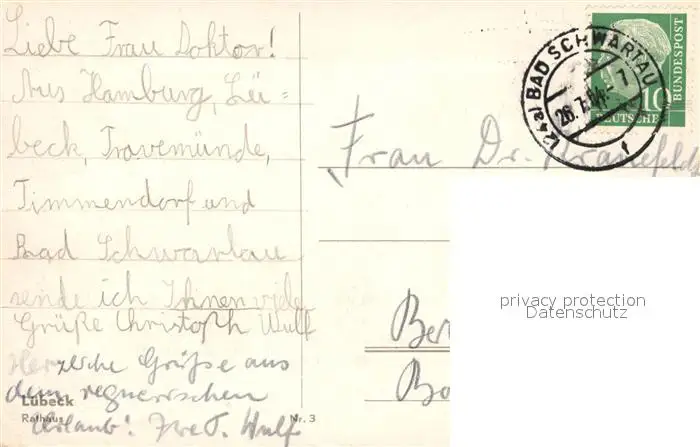 Liebe Frau Doktor!
Aus Hamburg, Lü=
beck, Travemünde,
Timmendorf und
Bad Schwartau
sende ich Ihnen viele
Grüße Christoph Wulf
Herzliche Grüße aus
dem regnerischen
Urlaub! Ihre T. Wulf
Lübeck
Rathaus
Nr. 3
(24a) BAD SCHWARTAU 1
26.7.
f
10
DEUTSCHE
BUNDESPOST
Frau Dr. Kranefeld
Ber
Bo
privacy protection
Datenschutz